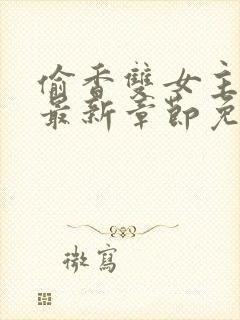 偷香雙女主
最新章節免
微寫